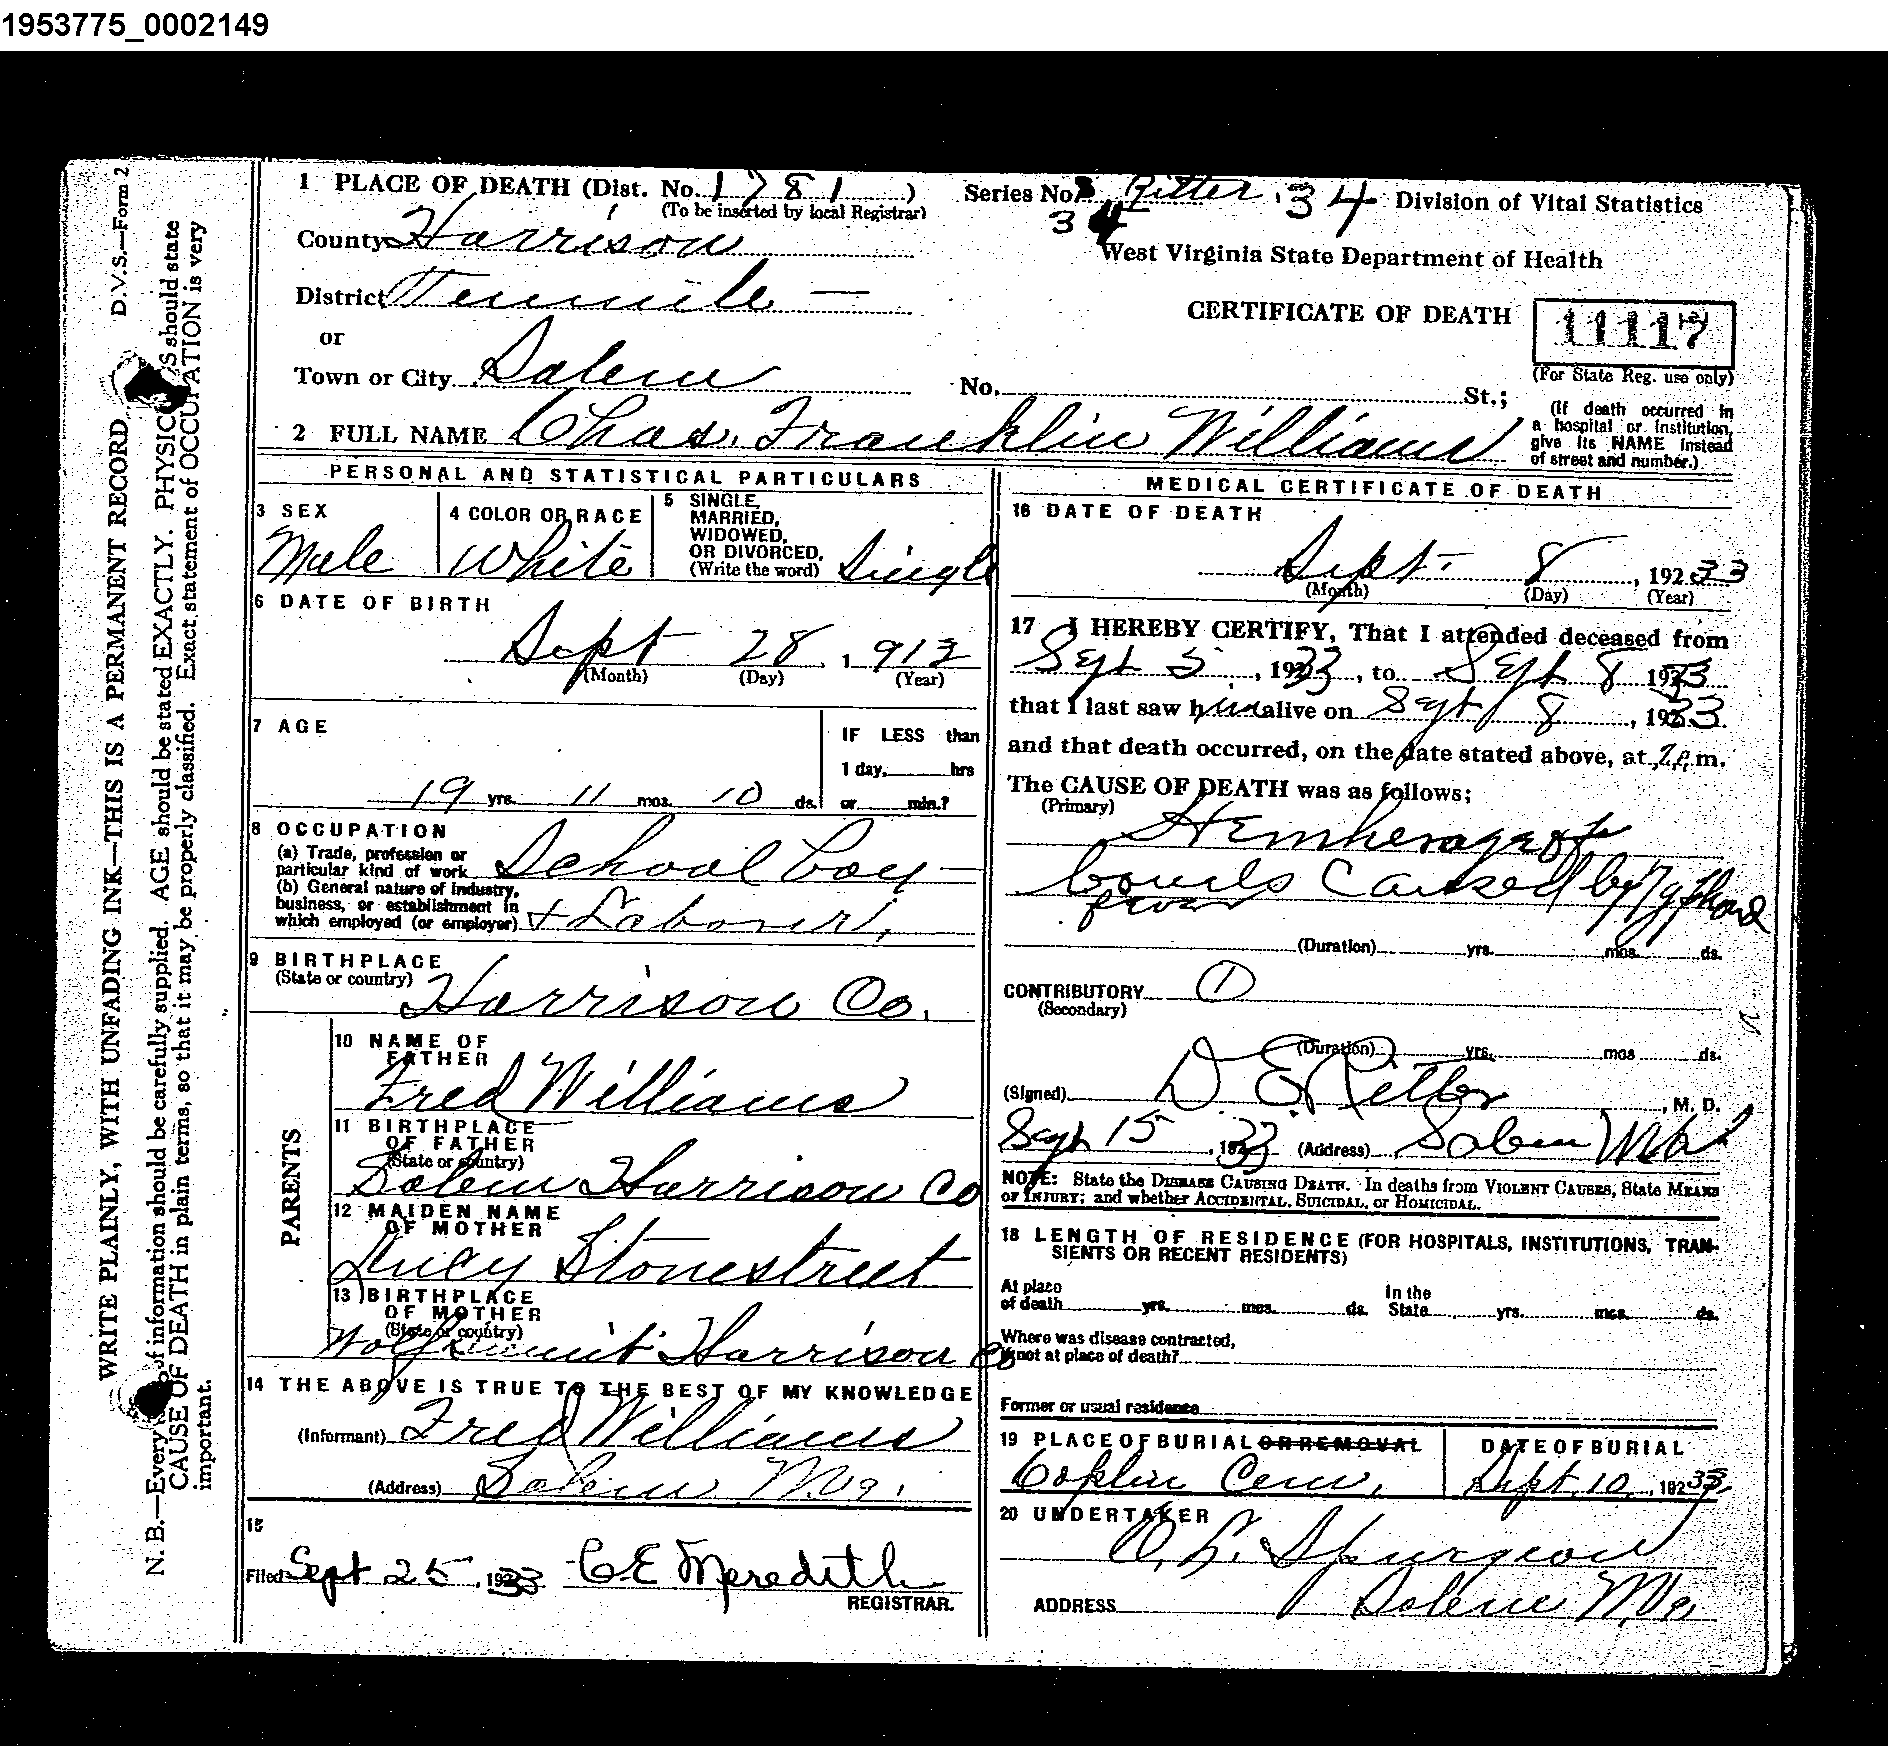 1953775_0002149
1 PLACE OF DEATH (Dist. No. 1781 ) Series No. Ritter. 34 Division of Vital Statistics
(To be inserted by local Registrar) 34
County Harrison West Virginia State Department of Health
District Tenmile —
CERTIFICATE OF DEATH 11117
or
(For State Reg. use only)
Town or City Salem No. St.;
(If death occurred in
a hospital or institution,
give its NAME instead
of street and number.)
2 FULL NAME Chas. Franklin Williams
PERSONAL AND STATISTICAL PARTICULARS
3 SEX
Male
4 COLOR OR RACE
White
5 SINGLE,
MARRIED,
WIDOWED,
OR DIVORCED,
(Write the word) Single
6 DATE OF BIRTH
Sept 28, 913
(Month) (Day) (Year)
7 AGE
19 yrs. 11 mos. 10 ds.
IF LESS than
1 day, hrs
or min.?
8 OCCUPATION
(a) Trade, profession or
particular kind of work School boy —
(b) General nature of industry,
business, or establishment in
which employed (or employer) + Laborer,
9 BIRTHPLACE
(State or country) Harrison Co.
PARENTS
10 NAME OF
FATHER
Fred Williams
11 BIRTHPLACE
OF FATHER
(State or country)
Salem Harrison Co
12 MAIDEN NAME
OF MOTHER
Lucy Stonestreet
13 BIRTHPLACE
OF MOTHER
(State or country)
Wolf Summit Harrison Co
14 THE ABOVE IS TRUE TO THE BEST OF MY KNOWLEDGE
(Informant) Fred Williams
(Address) Salem W.Va.
15
Filed Sept 25, 1933 CE Meredith
REGISTRAR.
MEDICAL CERTIFICATE OF DEATH
16 DATE OF DEATH
Sept. 8, 19233
(Month) (Day) (Year)
17 I HEREBY CERTIFY, That I attended deceased from
Sept 5, 1933, to Sept 8 1933
that I last saw him alive on Sept 8, 1933
and that death occurred, on the date stated above, at m.
The CAUSE OF DEATH was as follows:
(Primary) Hemherage of
bowels Caused by Typhoid
fever
(Duration) yrs. mos. ds.
CONTRIBUTORY 1
(Secondary)
(Duration) yrs. mos ds.
(Signed) D E Ritter, M. D.
Sept 15, 1933 (Address) Salem W Va
NOTE: State the DISEASE CAUSING DEATH. In deaths from VIOLENT CAUSES, State MEANS
OF INJURY; and whether ACCIDENTAL, SUICIDAL, or HOMICIDAL.
18 LENGTH OF RESIDENCE (FOR HOSPITALS, INSTITUTIONS, TRAN-
SIENTS OR RECENT RESIDENTS)
At place
of death yrs. mos. ds. In the
State yrs. mos. ds.
Where was disease contracted,
if not at place of death?
Former or usual residence
19 PLACE OF BURIAL OR REMOVAL
Coplin Cem.
DATE OF BURIAL
Sept. 10, 1933
20 UNDERTAKER
O. L. Spurgeon
ADDRESS Salem W.Va
D.V.S.—Form 2
WRITE PLAINLY, WITH UNFADING INK—THIS IS A PERMANENT RECORD
N. B.—Every of information should be carefully supplied. AGE should be stated EXACTLY. PHYSIC S should state
CAUSE OF DEATH in plain terms, so that it may be properly classified. Exact statement of OCCUPATION is very
important.